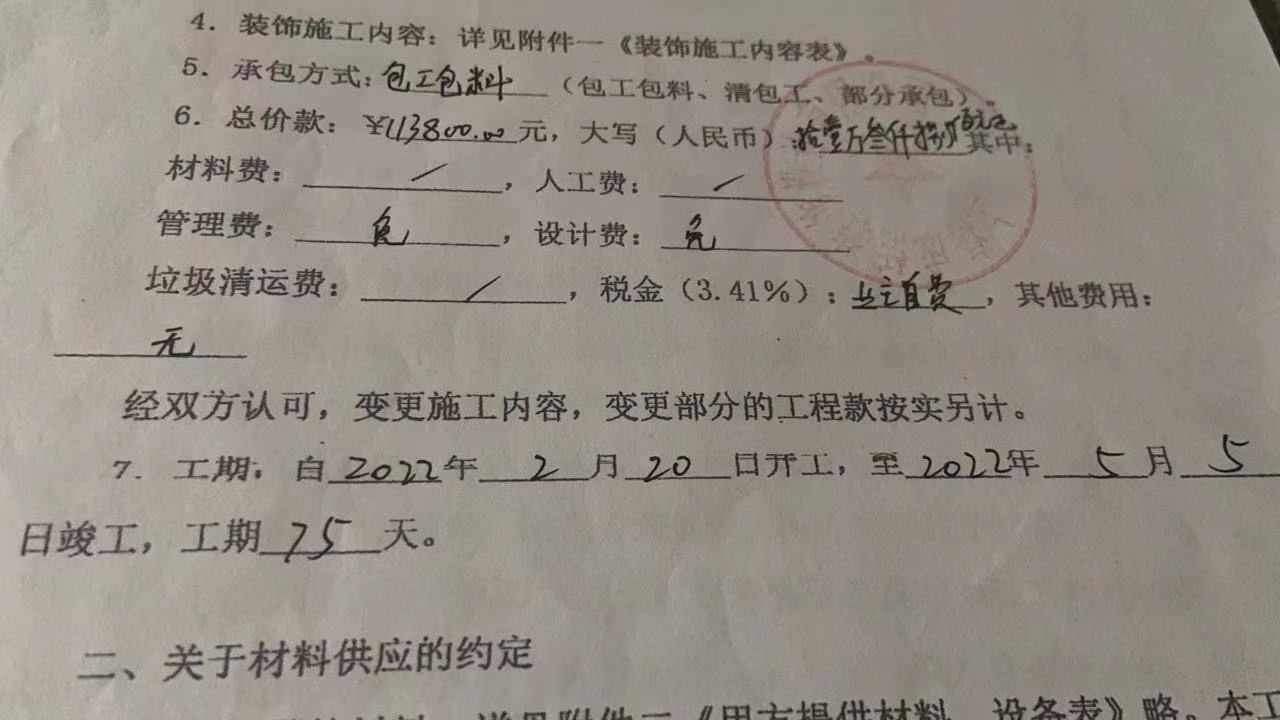 4. 装饰施工内容：详见附件一《装饰施工内容表》。
5. 承包方式：包工包料（包工包料、清包工、部分承包）。
6. 总价款：¥113800.00元，大写（人民币）：拾壹万叁仟捌佰元正其中：
材料费：/，人工费：/
管理费：免，设计费：免
垃圾清运费：/，税金（3.41%）：业主自费，其他费用：
无
经双方认可，变更施工内容，变更部分的工程款按实另计。
7. 工期：自2022年2月20日开工，至2022年5月5
日竣工，工期75天。
二、关于材料供应的约定
详见附件二《甲方提供材料、设备表》略。本工